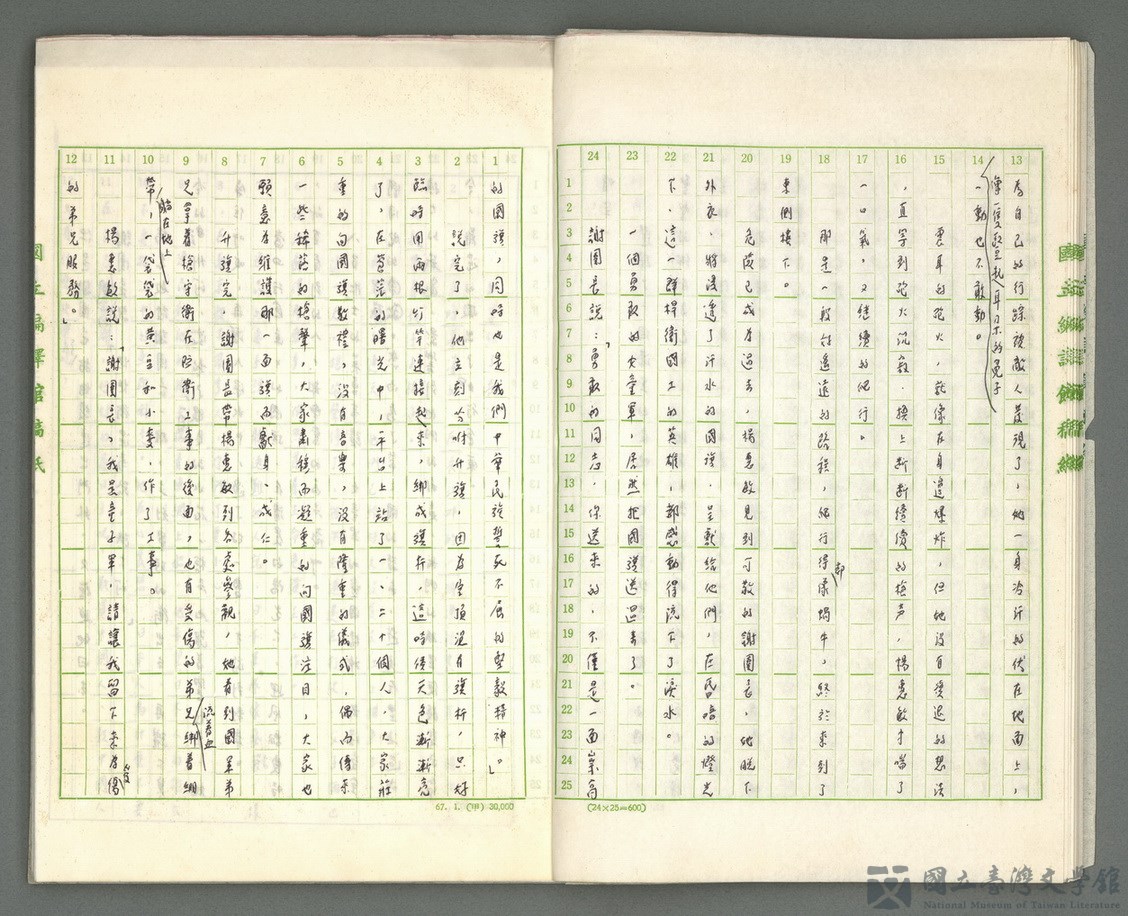 為自己的行踪被敵人發現了，她一身冷汗的伏在地面上，
像一隻竪起耳朵的兔子
一動也不敢動。
震耳的炮火，就像在身邊爆炸，但她沒有
，直等到炮火沉寂，換上斷斷續續的槍声，楊惠敏才喘了
一口氣，又繼續的爬行。
那是一段好遙遠的路程，爬行得像蝸牛，終於來到了
却
東側樓下。
危險已成為過去，楊惠敏見到可敬的謝團長，她脫下
外衣，將浸透了汗水的國旗，呈獻給他們，在昏暗的燈光
下，這一群捍衛國土的英雄，都感動得流下了淚水。
一個勇敢的女童軍，居然把國旗送過來了。
謝團長說：「勇敢的同志，你送來的，不僅是一面崇高
的國旗，同時也是我們中華民族誓死不屈的堅毅精神。」
說完了，他立刻吩咐升旗，因為屋頂沒有旗杆，只好
臨時用兩根竹竿連接起來，綁成旗杆，這時候天色漸漸亮
了，在曙光中，平台上站了一、二十個人，大家莊
重的向國旗敬禮，沒有音樂，沒有隆重的儀式，偶而傳來
一些稀落的槍聲，大家肅穆而凝重的向國旗注目，大家也
願意為維護那一面旗而獻身、成仁。
升旗完，謝團長帶楊惠敏到各處參觀，她看到國軍弟
兄拿着槍守衛在防衛工事的後面，也有受傷的弟兄綁着綳
流着血
帶，一袋袋的黃豆和小麥，作了工事。
躺在地上
楊惠敏說：「謝團長，我是童子軍，請讓我留下來為傷
的弟兄服務。」
13 14 15 16 17 18 19 20 21 22 23 24
1 2 3 4 5 6 7 8 9 10 11 12
1 2 3 4 5 6 7 8 9 10 11 12 13 14 15 16 17 18 19 20 21 22 23 24 25
67. 1. (甲) 20,000
(24×25=600)
國立編譯館稿紙
國立臺灣文學館
National Museum of Taiwan Literature